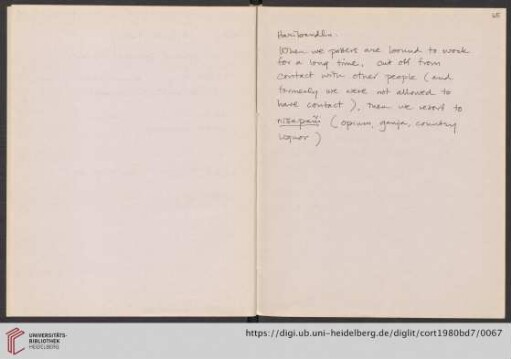 65
Haribandhu.
When we potters are bound to work
for a long time, cut off from
contact with other people (and
formerly we were not allowed to
have contact), then we resort to
(opium, ganja, country
liquor)
UNIVERSITÄTS-
BIBLIOTHEK
HEIDELBERG
https://digi.ub.uni-heidelberg.de/diglit/cort1980bd7/0067